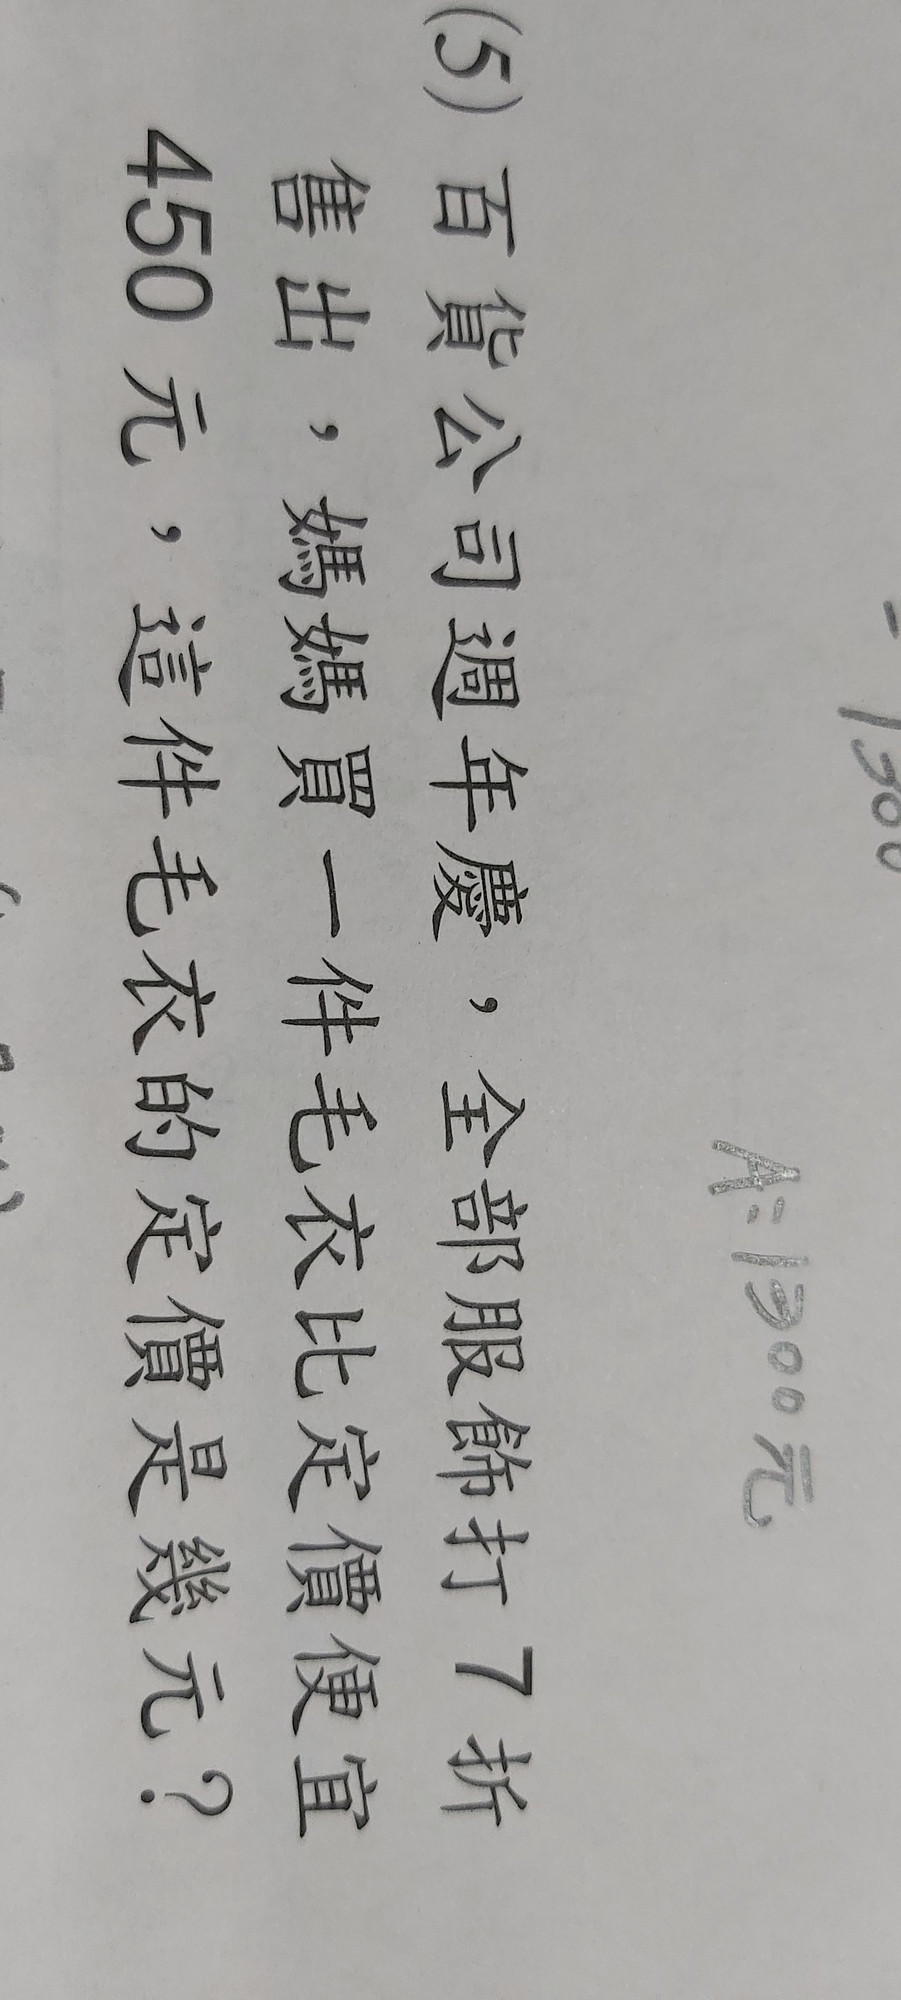 = 1300
A：1300元
(5) 百貨公司週年慶，全部服飾打 7 折
售出，媽媽買一件毛衣比定價便宜
450 元，這件毛衣的定價是幾元？